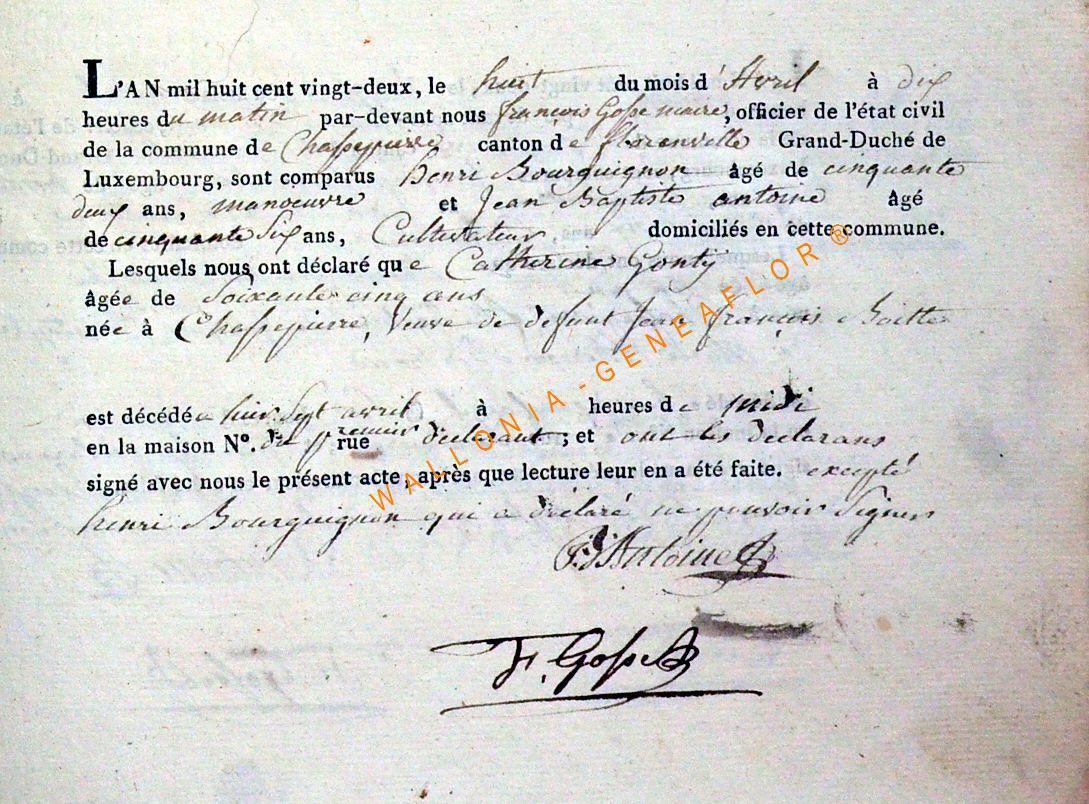 L'AN mil huit cent vingt-deux, le huit du mois d'Avril à dix
heures du matin par-devant nous françois Gosse maire, officier de l'état civil
de la commune de Chassepierre canton de florenville Grand-Duché de
Luxembourg, sont comparus henri Bourguignon âgé de cinquante
deux ans, manoeuvre et Jean Baptiste antoine âgé
de cinquante Six ans, Cultivateur domiciliés en cette commune.
Lesquels nous ont déclaré que Catherine Gonty
âgée de Soixante cinq ans
née à Chassepierre, Veuve de defunt Jean françois
est décédée hier Sept avril à heures de midi
en la maison N°. du premier rue déclarant ; et ont les déclarans
signé avec nous le présent acte, après que lecture leur en a été faite. excepté
henri Bourguignon qui a déclaré ne pouvoir Signer
J. B Antoine
F. Gosse
WALLONIA-GENEAFLOR ®